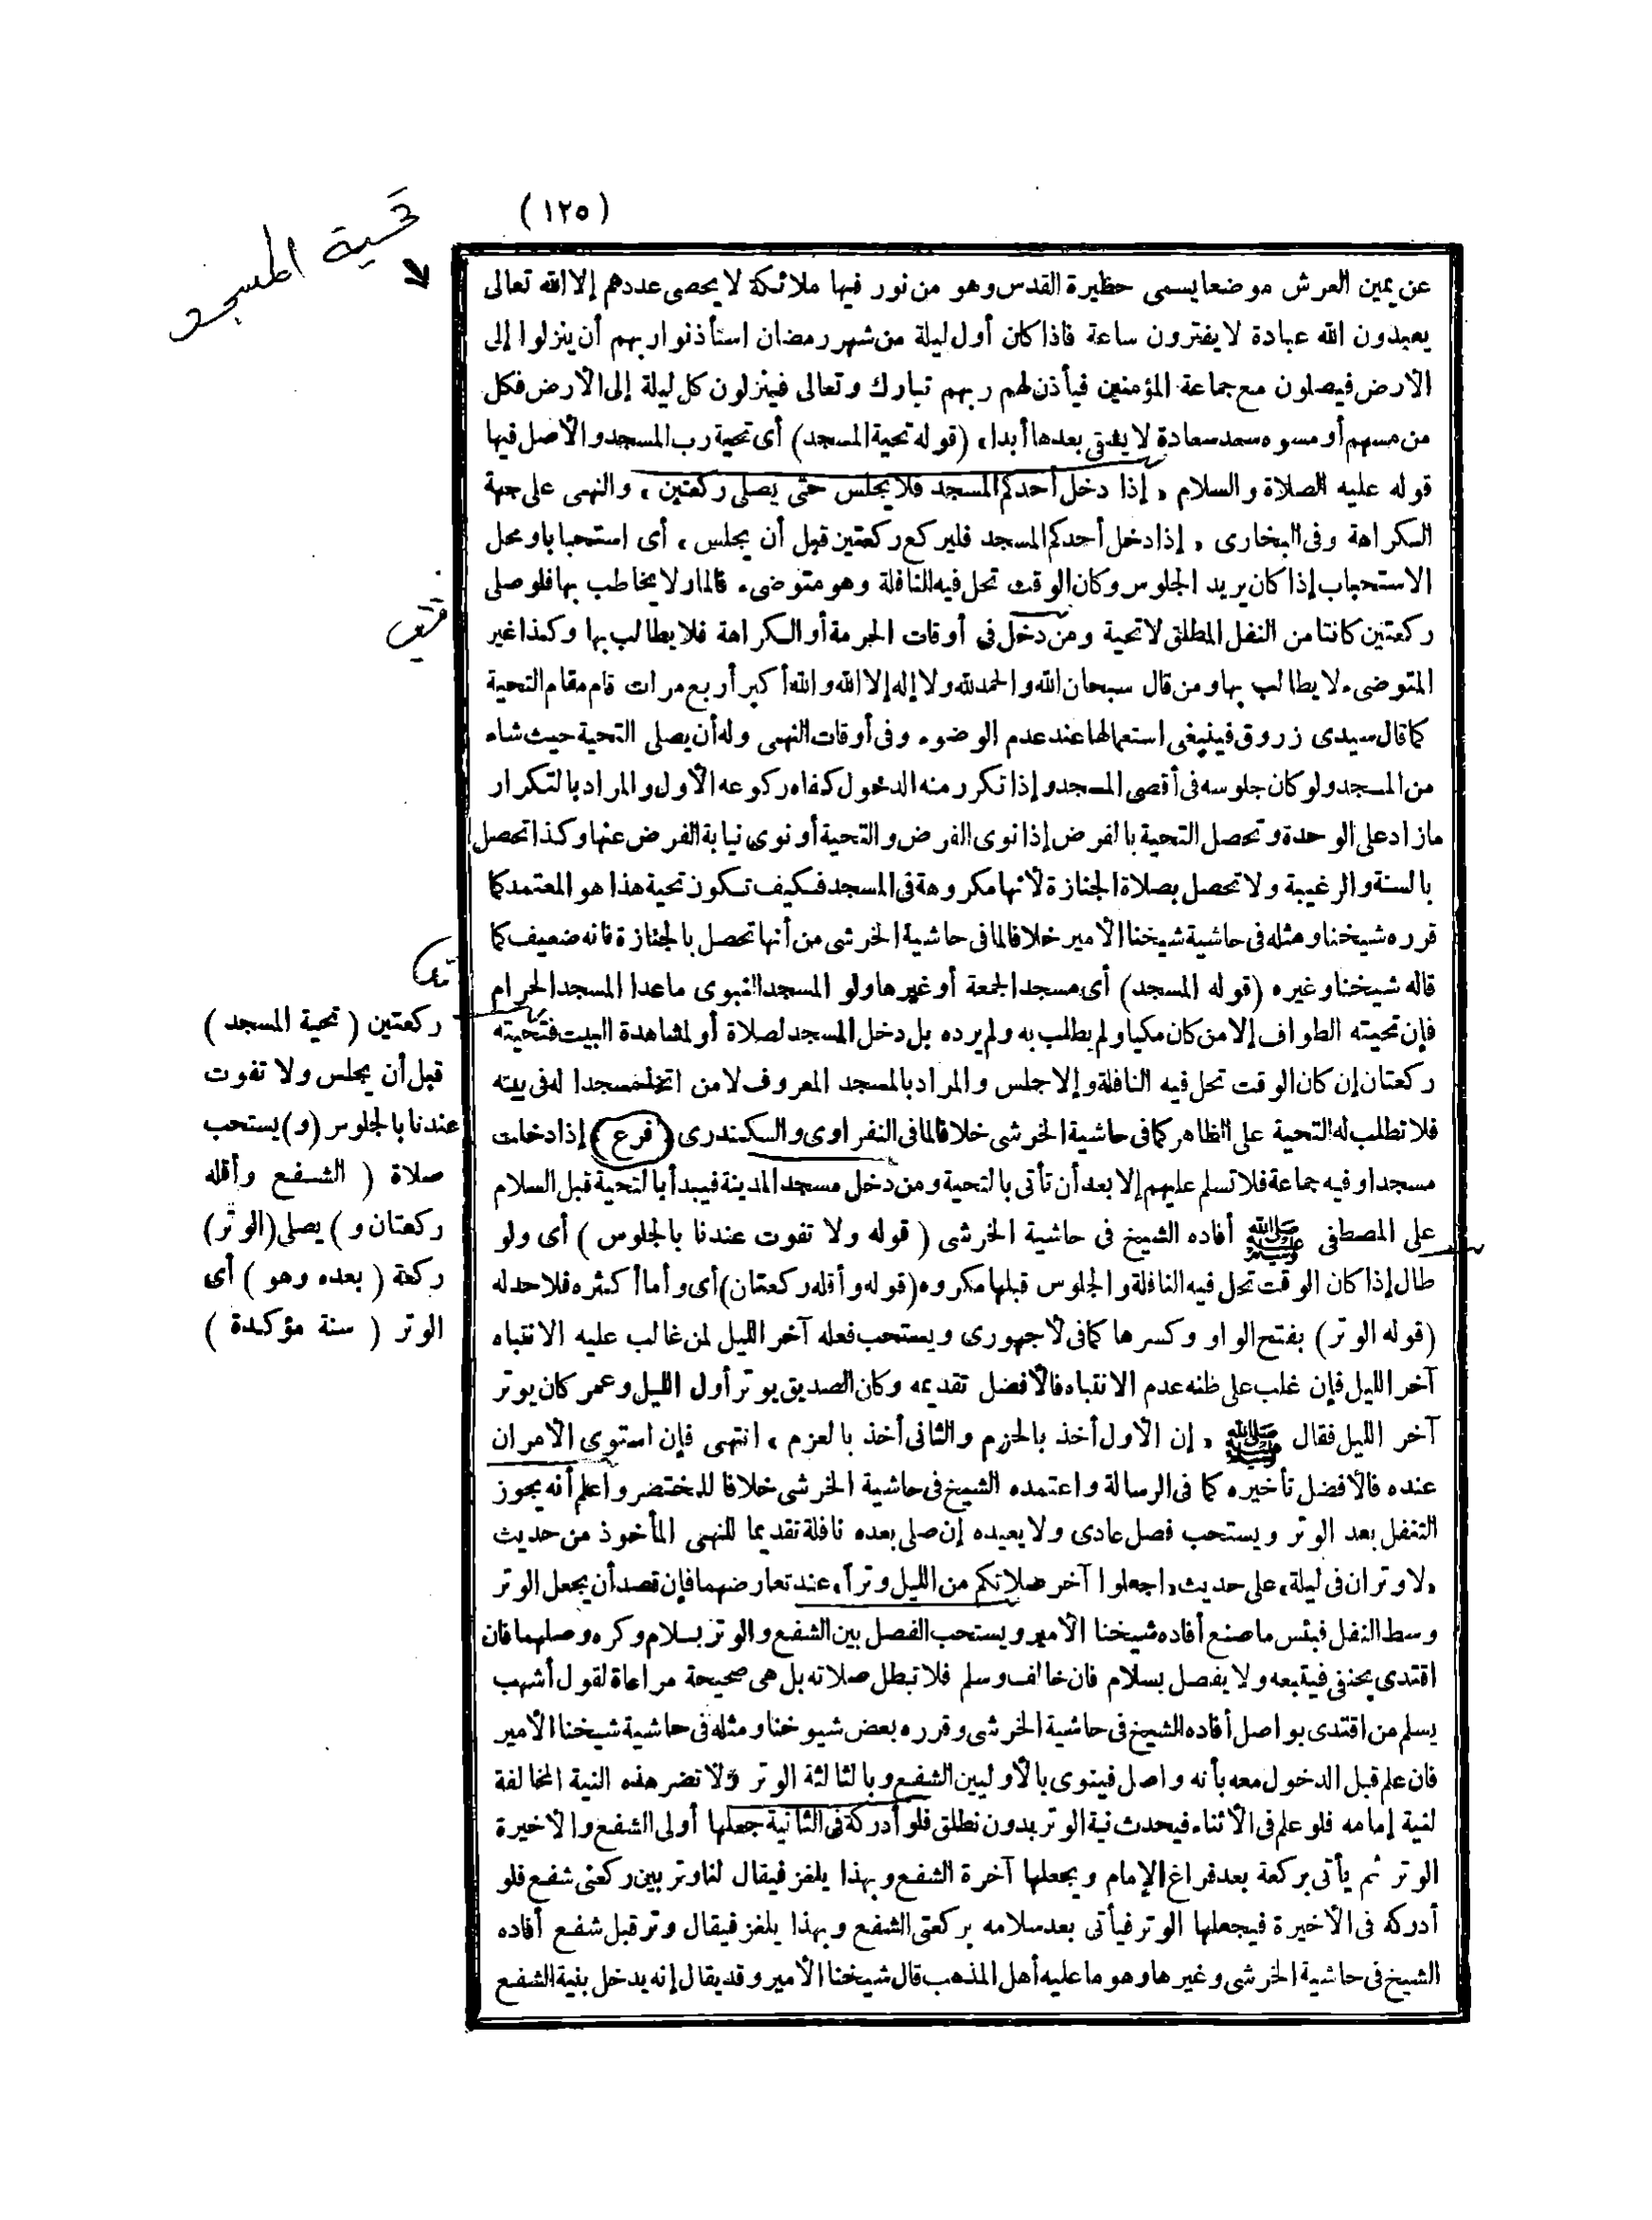 (١٢٥)
تحية المسجد
عن يمين العرش موضعا يسمى حظيرة القدس وهو من نور فيها ملائكة لا يحصى عددهم إلا الله تعالى
يعبدون الله عبادة لا يفترون ساعة فاذا كان أول ليلة من شهر رمضان استأذنوا ربهم أن ينزلوا إلى
الأرض فيصلون مع جماعة المؤمنين فيأذن لهم ربهم تبارك وتعالى فينزلون كل ليلة إلى الأرض فكل
من مسهم أو مسوه سعد سعادة لا يشقى بعدها أبدا، (قوله تحية المسجد) أى تحية رب المسجد والأصل فيها
قوله عليه الصلاة والسلام «إذا دخل أحدكم المسجد فلا يجلس حتى يصلى ركعتين، والنهى على جهة
الكراهة وفى البخارى «إذا دخل أحدكم المسجد فليركع ركعتين قبل أن يجلس، أى استحبابا ومحل
الاستحباب إذا كان يريد الجلوس وكان الوقت تحل فيه النافلة وهو متوضىء قالوا ولا يخاطب بها فلو صلى
ركعتين كانتا من النفل المطلق لا تحية ومن دخل فى أوقات الحرمة أو الكراهة فلا يطالب بها وكذا غير
المتوضىء لا يطالب بها ومن قال سبحان الله والحمد لله ولا إله إلا الله والله أكبر أربع مرات قام مقام التحية
كما قال سيدى زروق فينبغى استعمالها عند عدم الوضوء وفى أوقات النهى وله أن يصلى التحية حيث شاء
من المسجد ولو كان جلوسه فى أقصى المسجد وإذا تكرر منه الدخول كفاه ركوعه الأول والمراد بالتكرار
مازاد على الوحدة وتحصل التحية بالفرض إذا نوى الفرض والتحية أو نوى نيابة الفرض عنها وكذا تحصل
بالسنة والرغيبة ولا تحصل بصلاة الجنازة لأنها مكروهة فى المسجد فكيف تكون تحية هذا هو المعتمد كما
قرره شيخنا ومثله فى حاشية شيخنا الأمير خلافا لما فى حاشية الخرشى من أنها تحصل بالجنازة فانه ضعيف كما
قاله شيخنا وغيره (قوله المسجد) أى مسجد الجمعة أو غيرها ولو المسجد النبوى ماعدا المسجد الحرام
فإن تحيته الطواف إلا من كان مكيا ولم يطلب به ولم يرده بل دخل المسجد لصلاة أو لمشاهدة البيت فتحيته
ركعتان إن كان الوقت تحل فيه النافلة وإلا جلس والمراد بالمسجد المعروف لا من اتخذ مسجدا له فى بيته
فلا تطلب له التحية على الظاهر كما فى حاشية الخرشى خلافا لما فى النفراوى والسكندرى (فرع) إذا دخلت
مسجدا وفيه جماعة فلا تسلم عليهم إلا بعد أن تأتى بالتحية ومن دخل مسجد المدينة فيبدأ بالتحية قبل السلام
على المصطفى ﷺ أفاده الشيخ فى حاشية الخرشى (قوله ولا تفوت عندنا بالجلوس) أى ولو
طال إذا كان الوقت تحل فيه النافلة والجلوس قبلها مكروه (قوله وأقله ركعتان) أى وأما أكثره فلا حد له
(قوله الوتر) بفتح الواو وكسرها كما فى لأجهورى ويستحب فعله آخر الليل لمن غالب عليه الانتباه
آخر الليل فإن غلب على ظنه عدم الانتباه فالأفضل تقديمه وكان الصديق يوتر أول الليل وعمر كان يوتر
آخر الليل فقال ﷺ «إن الأول أخذ بالحزم والثانى أخذ بالعزم، انتهى فإن استوى الأمران
عنده فالأفضل تأخيره كما فى الرسالة واعتمده الشيخ فى حاشية الخرشى خلافا للمختصر واعلم أنه يجوز
التنفل بعد الوتر ويستحب فصل عادى ولا يعيده إن صلى بعده نافلة تقديما للنهى المأخوذ من حديث
«لا وتران فى ليلة، على حديث «اجعلوا آخر صلاتكم من الليل وترا، عند تعارضهما فإن قصد أن يجعل الوتر
وسط النفل فبئس ما صنع أفاده شيخنا الأمير ويستحب الفصل بين الشفع والوتر بسلام وكره وصلهما فان
اقتدى بحنفى فيتبعه ولا يفصل بسلام فان خالف وسلم فلا تبطل صلاته بل هى صحيحة مراعاة لقول أشهب
يسلم من اقتدى بواصل أفاده الشيخ فى حاشية الخرشى وقرره بعض شيوخنا ومثله فى حاشية شيخنا الأمير
فان علم قبل الدخول معه بأنه واصل فينوى بالأوليين الشفع وبالثالثة الوتر ولا تضر هذه النية المخالفة
لنية إمامه فلو علم فى الأثناء فيحدث نية الوتر بدون نطلق فلو أدركه فى الثانية جعلها أولى الشفع والأخيرة
الوتر ثم يأتى بركعة بعد فراغ الإمام ويجعلها آخرة الشفع وبهذا يلغز فيقال لنا وتر بين ركعتى شفع فلو
أدركه فى الأخيرة فيجعلها الوتر فيأتى بعد سلامه بركعتى الشفع وبهذا يلغز فيقال وتر قبل شفع أفاده
الشيخ فى حاشية الخرشى وغيرها وهو ما عليه أهل المذهب قال شيخنا الأمير وقد يقال إنه يدخل بنية الشفع
ركعتين (تحية المسجد)
قبل أن يجلس ولا تفوت
عندنا بالجلوس (و) يستحب
صلاة (الشفع وأقله
ركعتان و) يصلى (الوتر)
ركعة (بعده وهو) أى
الوتر (سنة مؤكدة)